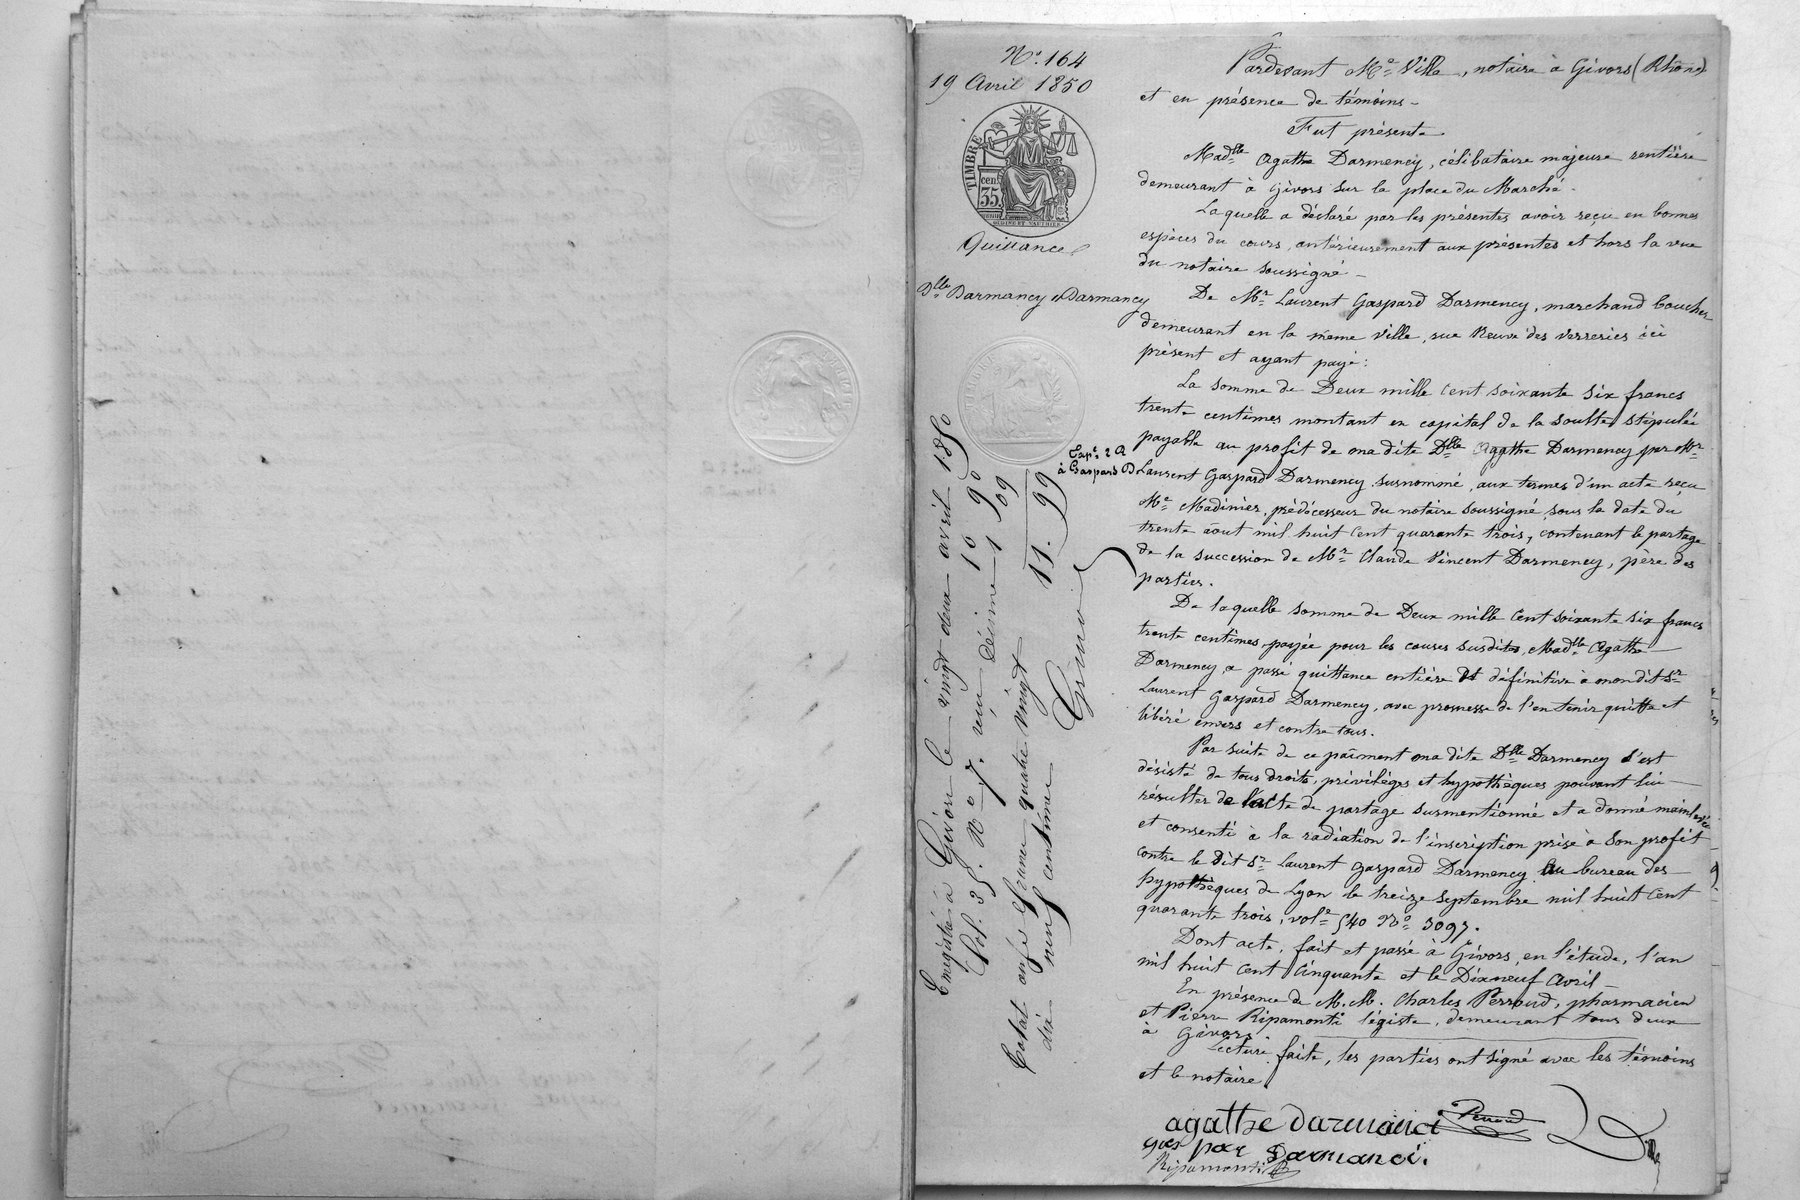 N° 164
19 Avril 1850
TIMBRE
cen.
35
Quittance
Dlle Darmancy et Darmancy
Enregistré à Givors le vingt deux avril 1850
Fol. 35. N° 7. reçu 10 90
décime 1 09
11. 99
Total onze francs quatre vingt
dix neuf centimes
Expé. 2 R
à Gaspard D
Pardevant Me Ville, notaire à Givors (Rhône)
et en présence de témoins -
Fut présente
Madlle Agathe Darmency, célibataire majeure rentière
demeurant à Givors sur la place du Marché -
Laquelle a déclaré par les présentes avoir reçu en bonnes
espèces du cours, antérieurement aux présentes et hors la vue
du notaire soussigné -
De Mr Laurent Gaspard Darmency, marchand boucher
demeurant en la même ville, rue Neuve des verreries ici
présent et ayant payé :
La somme de Deux mille cent soixante six francs
trente centimes montant en capital de la soulte stipulée
payable au profit de madite Dlle Agathe Darmency par Mr
Laurent Gaspard Darmency susnommé, aux termes d'un acte reçu
Me Madinier, prédécesseur du notaire soussigné, sous la date du
trente aout mil huit cent quarante trois, contenant le partage
de la succession de Mr Claude Vincent Darmency, père des
parties.
De laquelle somme de Deux mille Cent soixante six francs
trente centimes, payée pour les causes susdites, Madlle Agathe
Darmency a passé quittance entière et définitive à mondit Sr
Laurent Gaspard Darmency, avec promesse de l'en tenir quitte et
libéré envers et contre tous.
Par suite de ce paîment madite Dlle Darmency s'est
désisté de tous droits, privilèges et hypothèques pouvant lui
résulter de l'acte de partage surmentionné et a donné mainlevée
et consenti à la radiation de l'inscription prise à son profit
contre le dit Sr Laurent Gaspard Darmency au bureau des
hypothèques de Lyon le treize septembre mil huit cent
quarante trois, vole 540 No 3097.
Dont acte, fait et passé à Givors, en l'étude, l'an
mil huit cent cinquante et le Dixneuf Avril -
En présence de M.M. Charles Perroud, pharmacien
et Pierre Ripamonti légiste, demeurant tous deux
à Givors
Lecture faite, les parties ont signé avec les témoins
et le notaire.
agathe darmanci Perroud
par Darmanci.
Ripamonti